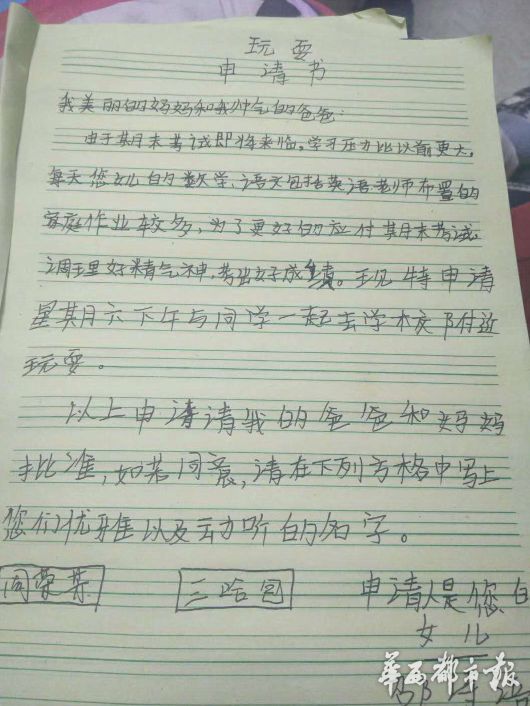 玩耍
申请书
我美丽的妈妈和我帅气的爸爸:
由于期末考试即将来临,学习压力比以前更大,
每天您女儿的数学、语文包括英语老师布置的
家庭作业较多,为了更好的应付期末考试、
调理好精气神,考出好子成绩。现特申请
星期六下午与同学一起去学校附近
玩耍。
以上申请请我的爸爸和妈妈
批准,如若同意,请在下列方格中写上
您们优雅以及动听的名字。
三哈包 申请人是您
女儿
华西都市报